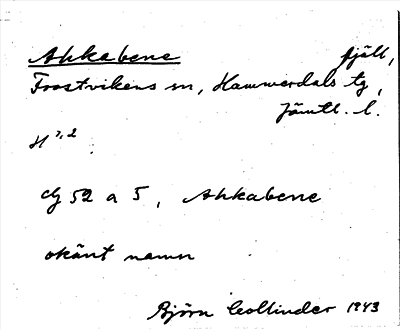 Ahkabene fjäll,
Frostvikens sn, Hammerdals tg,
Jämtl. l.
dg 52 a 5, Ahkabene
okänt namn
Björn Collinder 1943